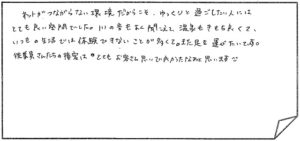 ネットがつながらない環境だからこそ、ゆっくりと過ごしたい人には
とても良い空間でした。川の音もよく聞こえて温泉もきもち良くて、
いつもの生活では体験できないことが多くて。また足を運びたいです。
従業員さんたちの接客はとてもお客さん思いで良かったなあと思います